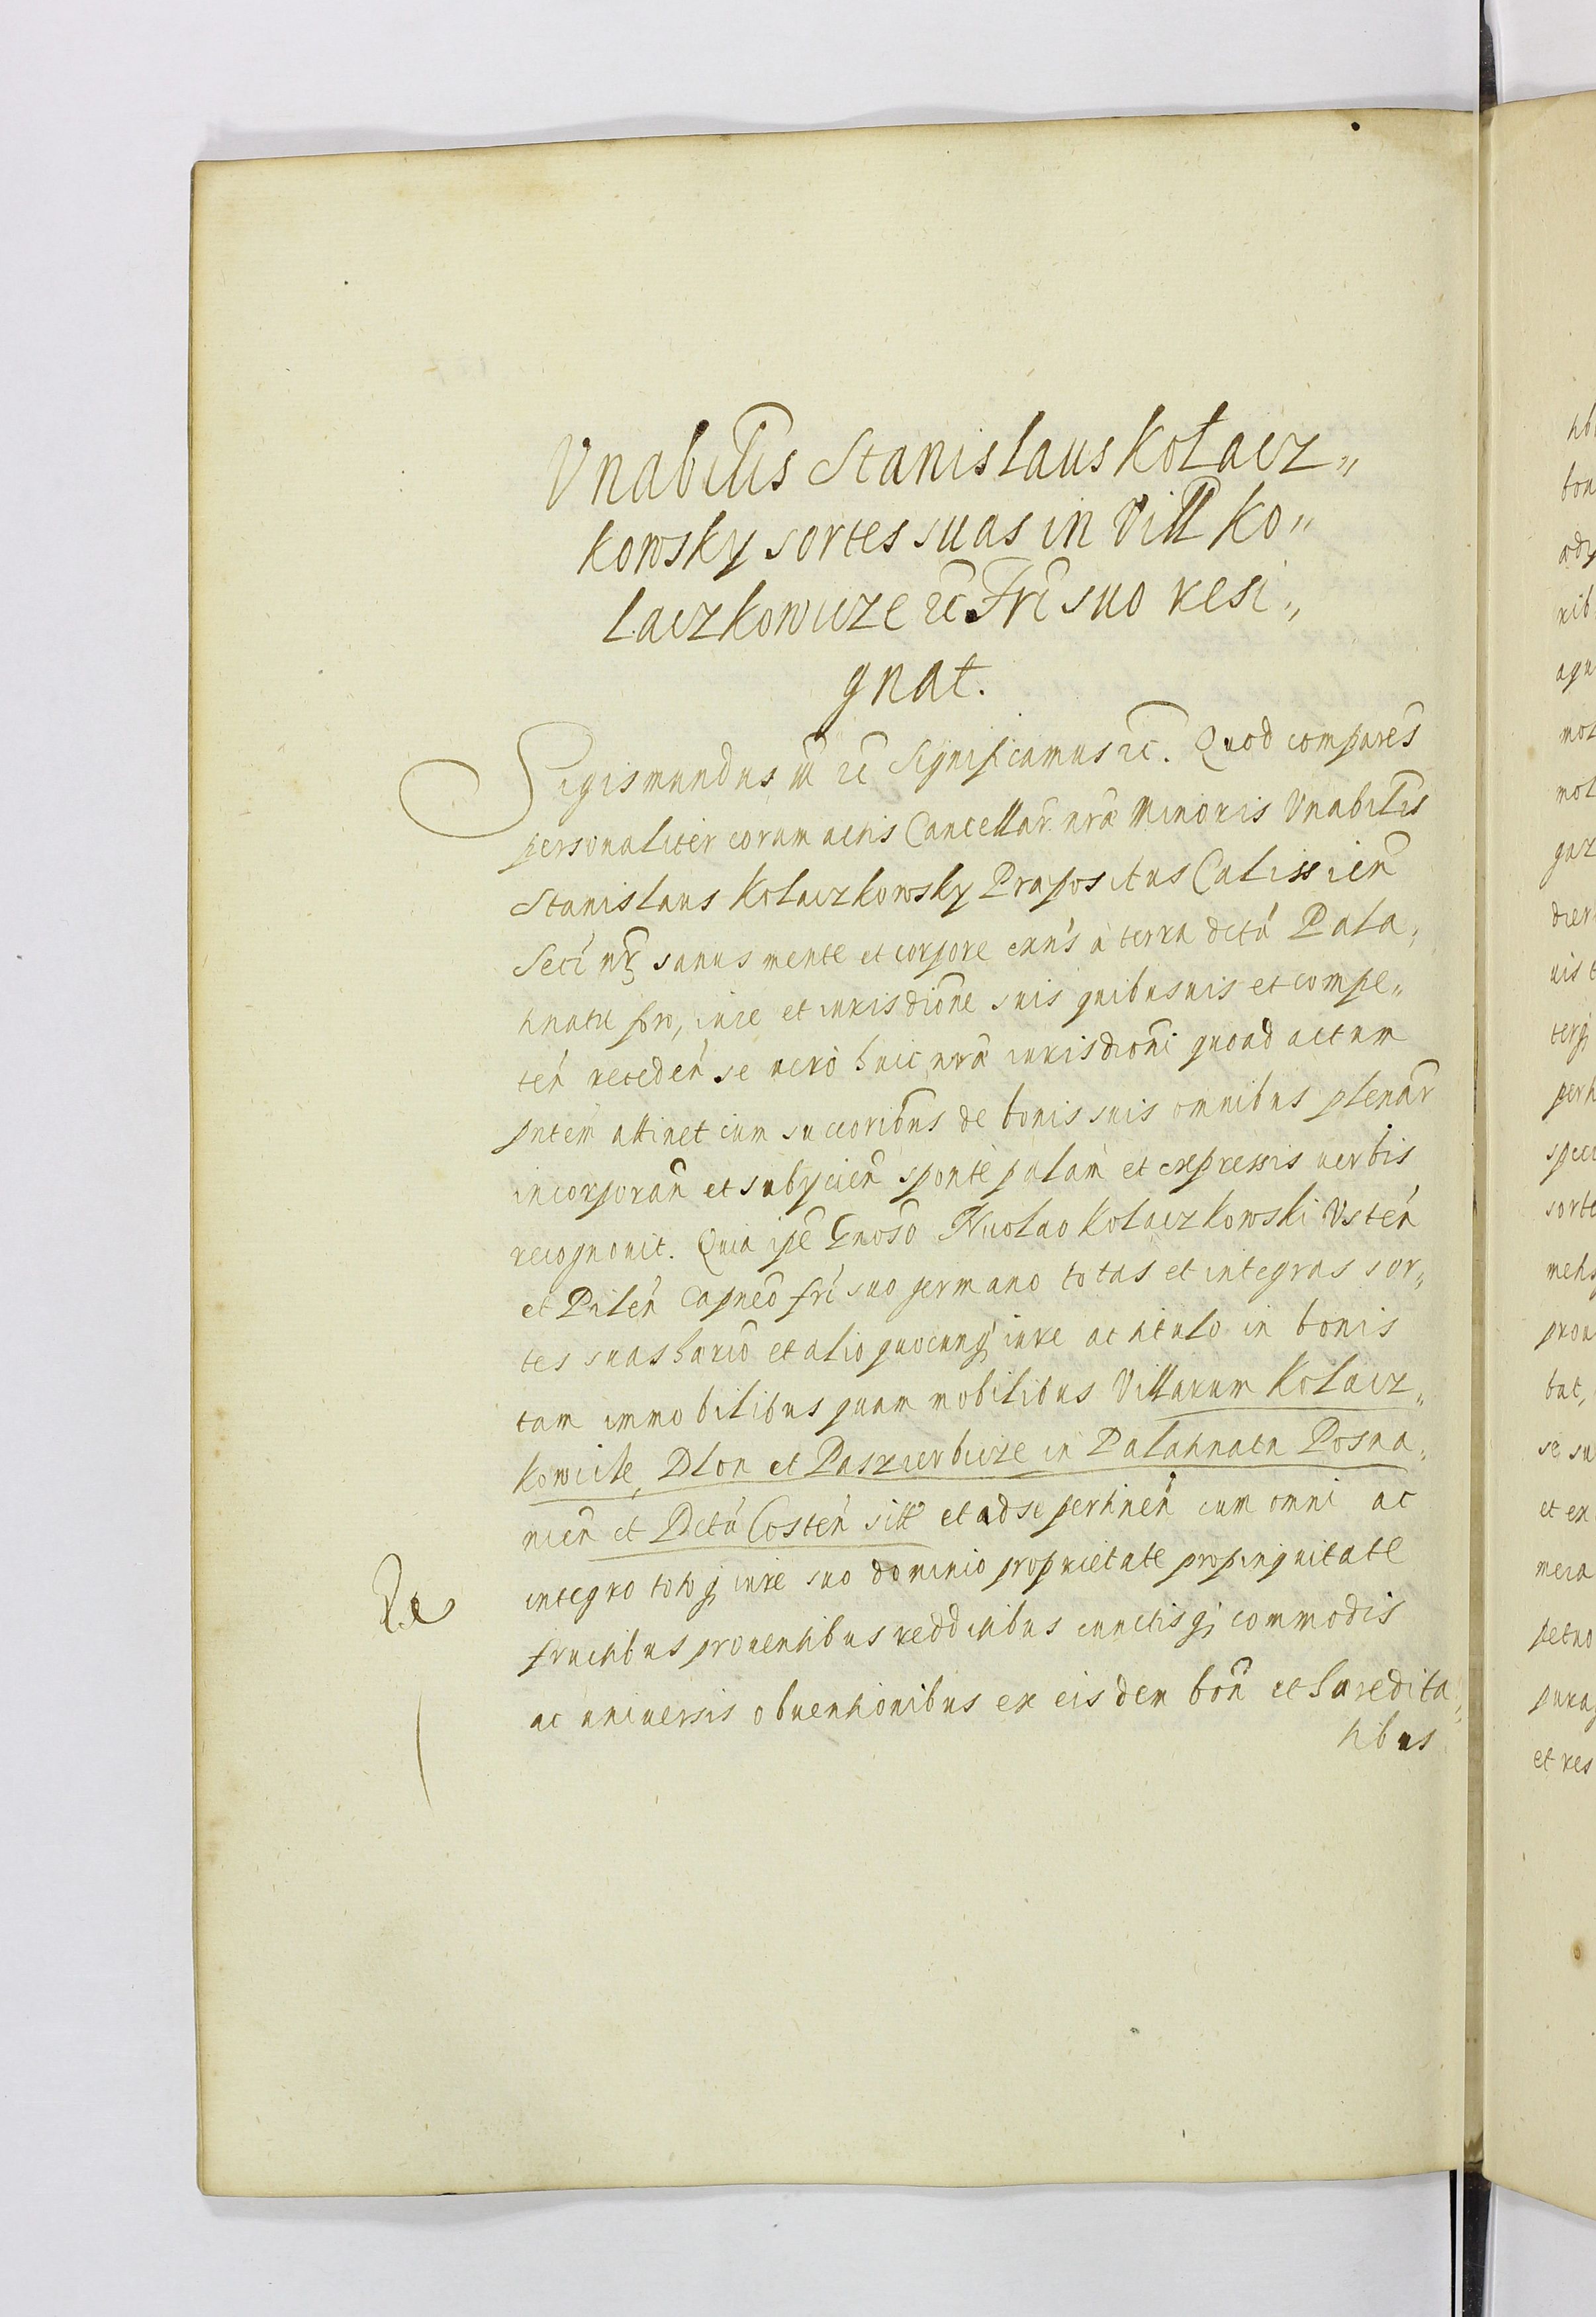 Vnabilis Stanislaus Kołacz„
kowsky sortes suas in Vill Ko„
laczkowicze etc Fri suo resi„
gnat.
Sigismundus III etc Significamus etc. Quod comparens
personaliter coram actis Cancellar nræ Minoris Vnabilis
Stanislaus Kolaczkowsky Præpositus Calissien
Secr nr sanus mente et corpore exns à terra dctu Pala„
tinatu foro, iure et iurisdione suis quibusuis et compe„
ten receden se uero huic nræ iurisdioni quoad actum
pntem attinet cum succoribus de bonis suis omnibus plenar
incorporan et subycien sponte palam et expressis uerbis
recognouit. Quia ipe Gnoso Nicolao Kolaczkowski Vsten
et Pilen Capneo fri suo germano totas et integras sor„
tes suas hærio et alio quocunq iure ac titulo in bonis
tam immobilibus quam mobilibus Villarum Kolacz„
kowicze, Dlon et Paszierbicze in Palatinatu Posna„
nien et Dctu Costen sitt et ad se pertinen cum omni ac
integro totoq iure suo dominio proprietate propinquitate
fructibus prouentibus redditibus cunctisq commodis
ac uniuersis obuentionibus ex eisdem bon et hæredita„
tibus